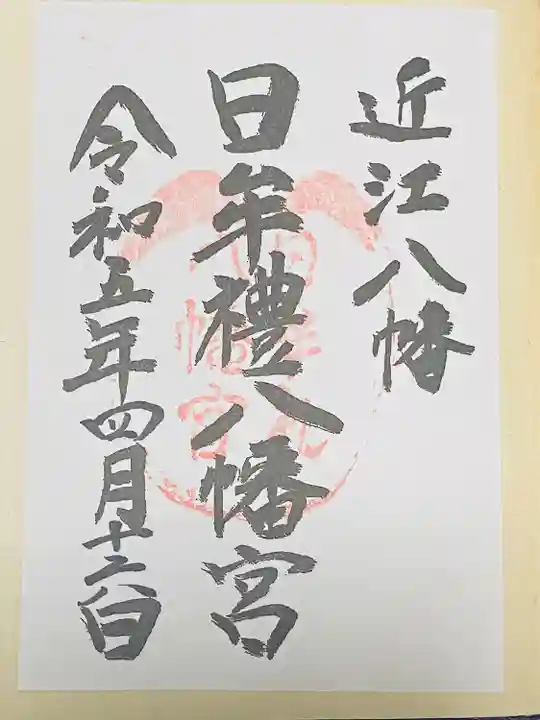 近江八幡
日牟禮八幡宮
令和五年四月十六日